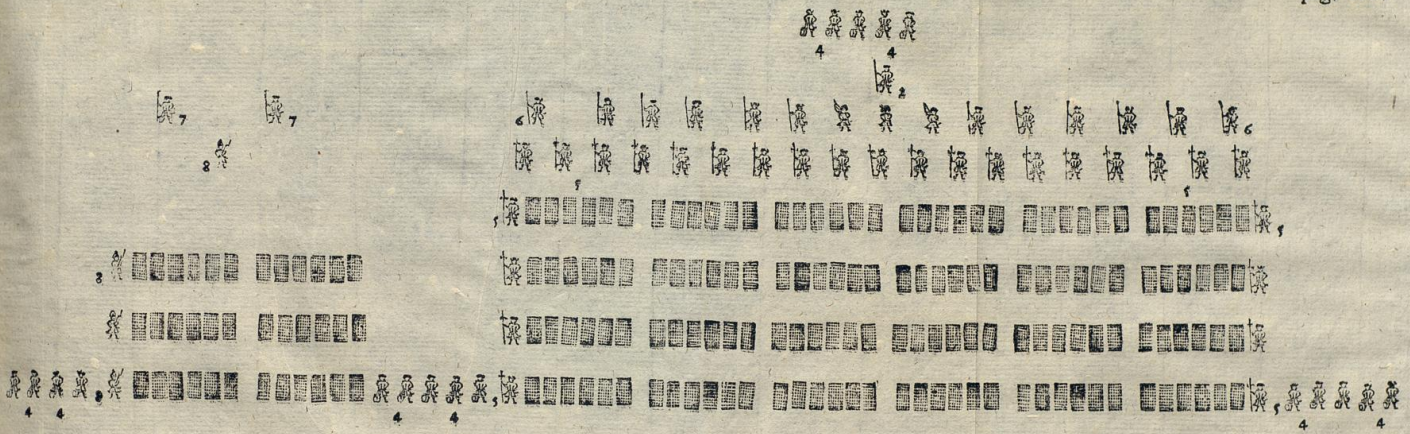 4 4
2
7 7 6 6
8
5 5
5 5
8
4 4 8 4 4 5 5 4 4